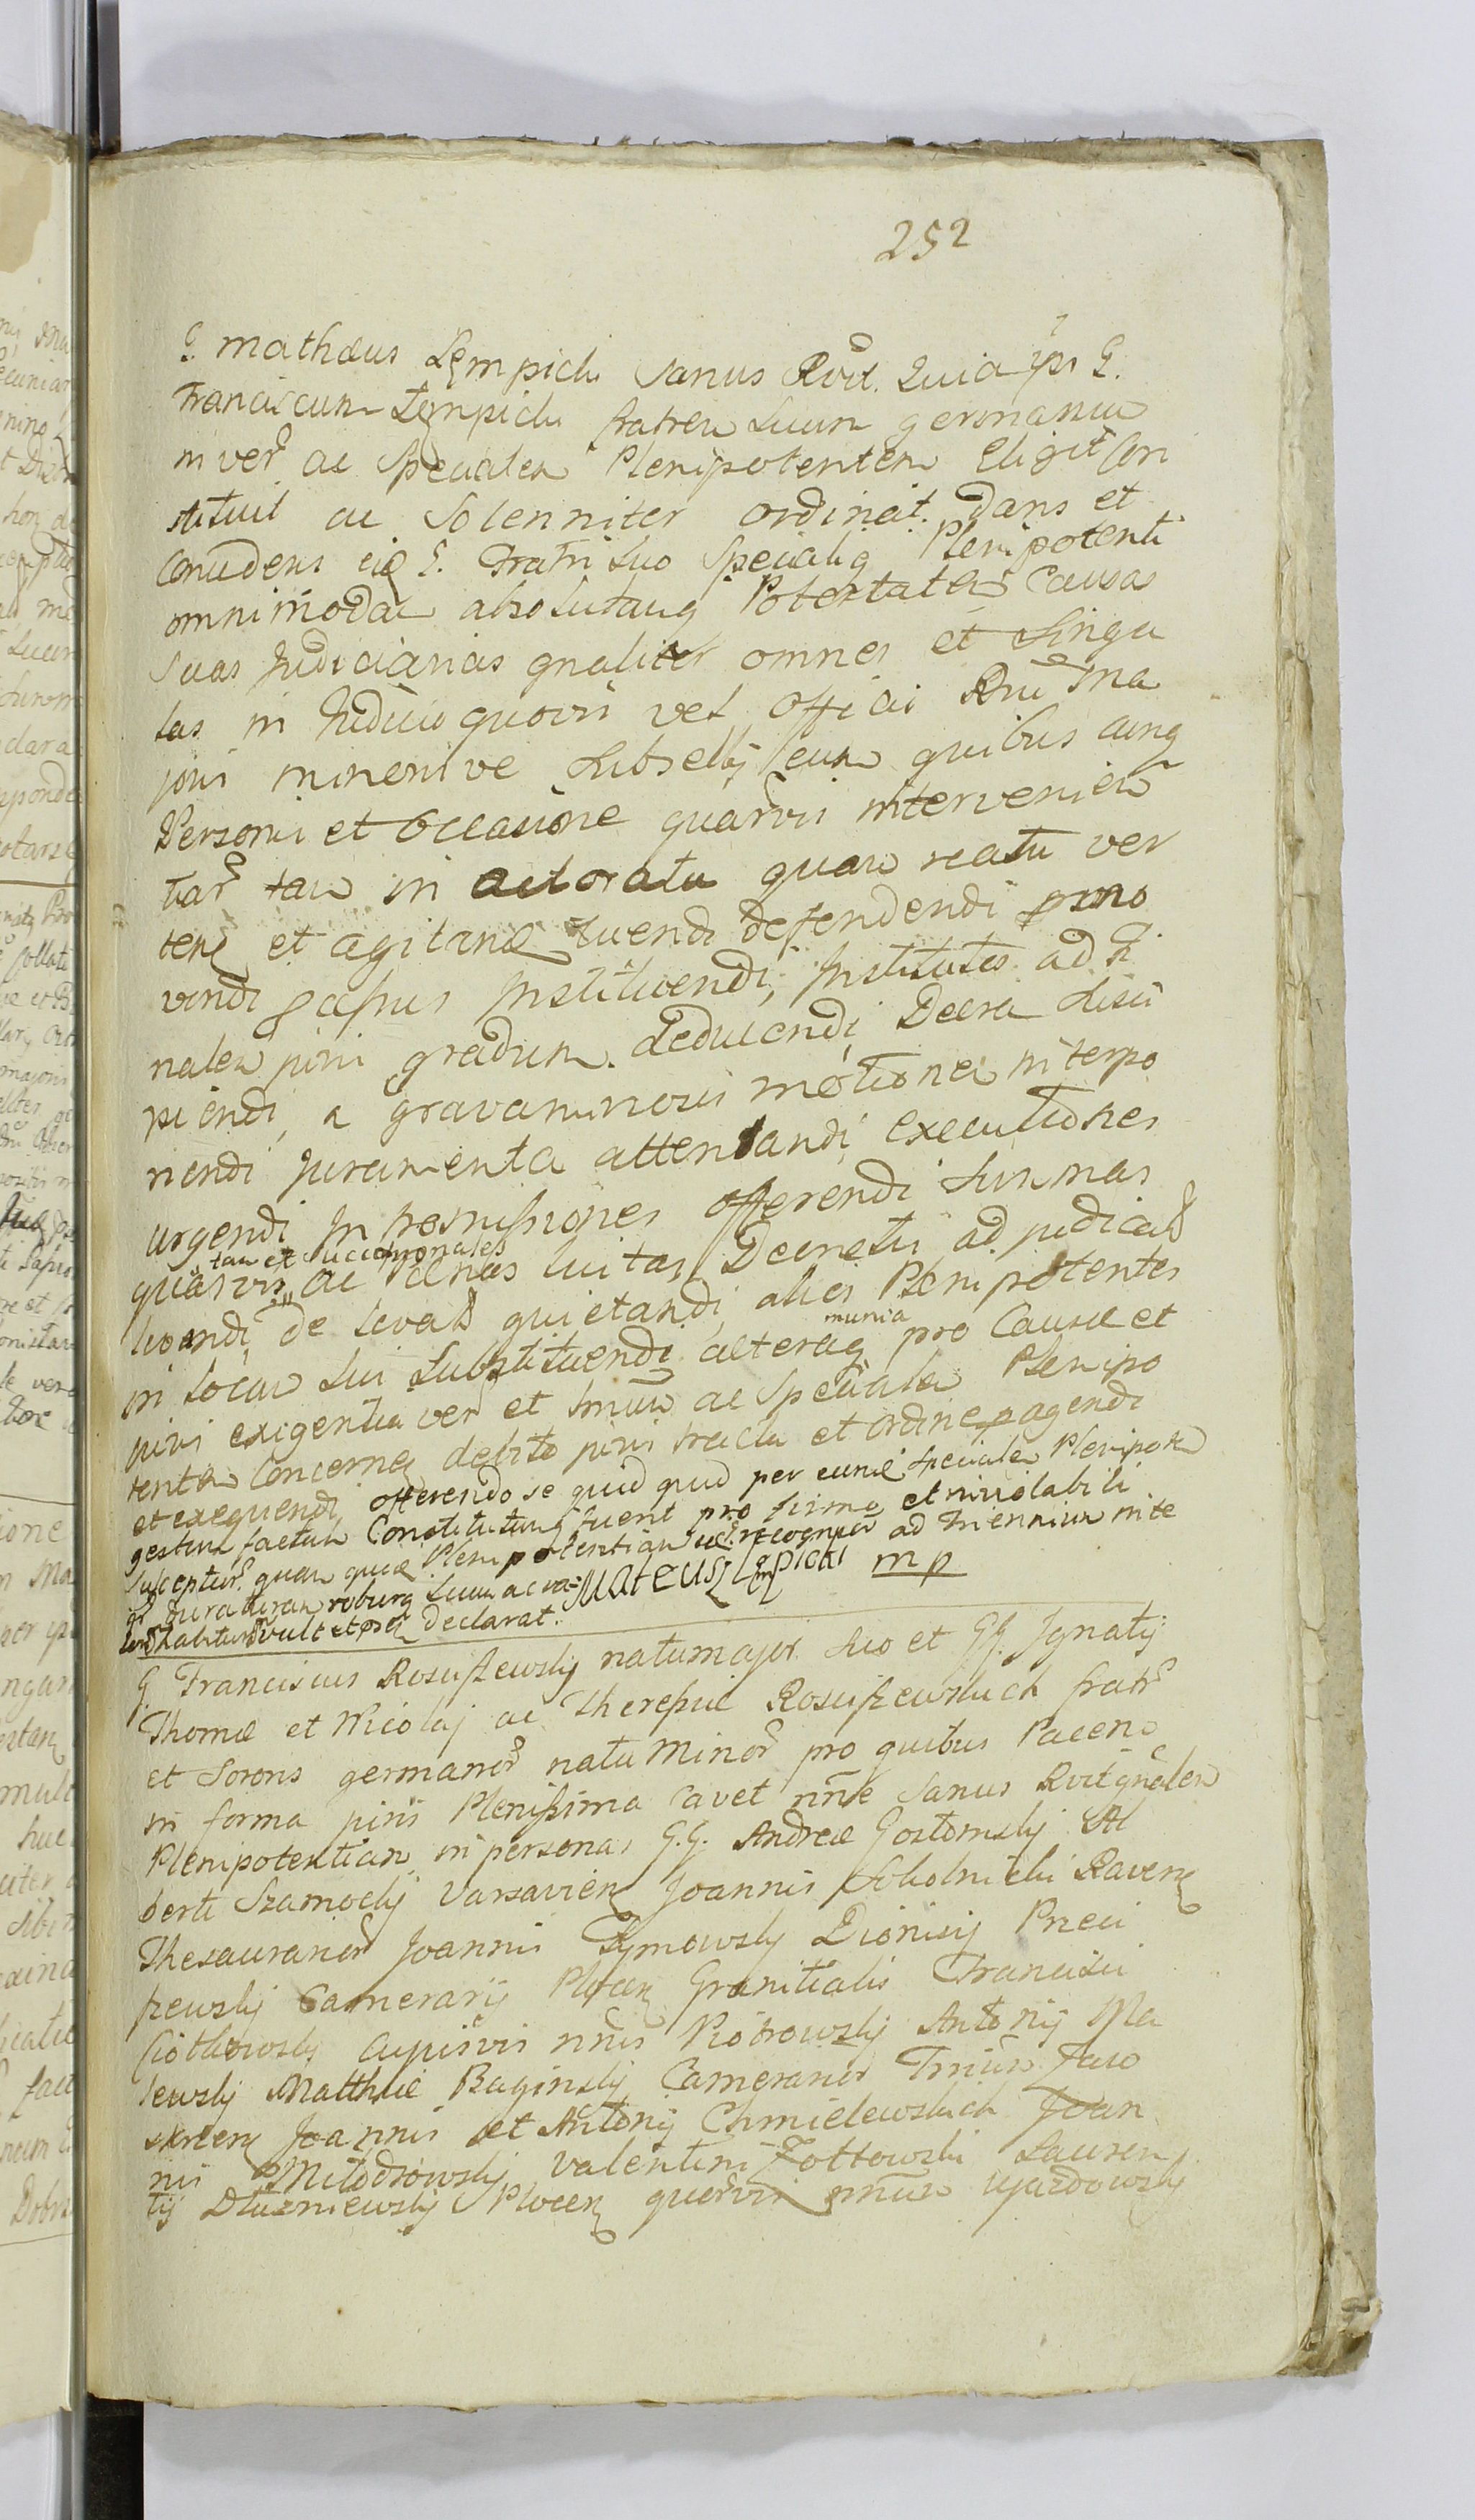 252
G. Mathæus Lempicki Sanus Rvit. Quia ipse G.
Franciscum Lempicki fratrem suum germanum
in verũ ac Specialem Plenipotentem eligit Con
stituit ac Solenniter ordinat. Dans et
Concedens eidẽ G. Fratri Suo Specialiq Plenipotenti
omnimodam absolutamq Potestatem Causas
Suas Judiciarias gnaliter omnes et Singu
las in Judicio quovis vel Officio Rni Ma
joris minorisve Subsellij cum quibus cunq
Personis et occasione quarũvis intervenien
tiar tam in actoratu quam reatu ver
ten et agitand tuendi defendendi promo
vendi Instituendi, Institutes ad fi
nalem juris gradum deducendi Decra Susci
piendi, a gravaminosis motiones interpo
nendi Juramenta attentandi, executiones
urgendi Intromissiones offerendi Summas
tam et Successionales
quasvis ac Pœnas luitas Decretis adjudicatas
levandi, de levatis quietandi, alios Plenipotentes
in locum Sui Substituendi alteraq munia pro Causæ et
juris exigentia verũ et Speciale Plenipo
tentem Concernen debito juris tractu et ordine peragendi
et exequendi offerendo se quid quid per eund Specialem Plenipoten
gestum factum Constitutumq fuerit pro firmo et inviolabili
Suscepturũ quam quidẽ Plenipotentiam recognitor ad Triennium inte
gr duraturam roburq Suum ac va- Mateusz Lempicki mp
lorẽ habiturã vult et declarat.
G. Franciscus Rosciszewsky natu major Suo et GG. Ignatij
Thomæ et Nicolaj ac Theresiæ Rosciszewskich fratrũ
et Sororis germanor natu Minorũ pro quibus Pacen
in forma juris Plenissima Cavet nñe Sanus Rvit gnalem
Plenipotentiam in personas G.G. Andreæ Gostomsky Al
berti Szamocky Varsavien Joannis Skolnicki Raven
Thesaurariorũ Joannis Tymowsky Dionisij Prieci
szewsky Camerarij Plocen Granitialis Francisci
Ciotkowsky Cujusvis nñis Piotrowsky Antonij Ma
lewsky Matthiæ Baginsky Camerarior Juro
skrien Joannis et Antonij Chmielewskich Joan
nis Milodrowsky Valentini Zottowski Lauren
tij Dluzniewsky Plocen quorvis nñũm Ujazdowsky